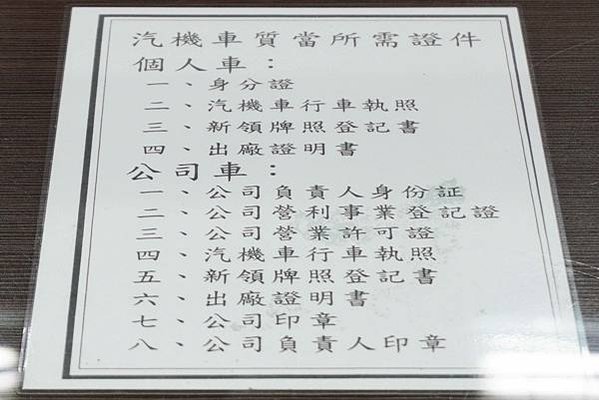 汽機車質當所需證件
個人車：
一、身分證
二、汽機車行車執照
三、新領牌照登記書
四、出廠證明書
公司車：
一、公司負責人身份証
二、公司營利事業登記證
三、公司營業許可證
四、汽機車行車執照
五、新領牌照登記書
六、出廠證明書
七、公司印章
八、公司負責人印章